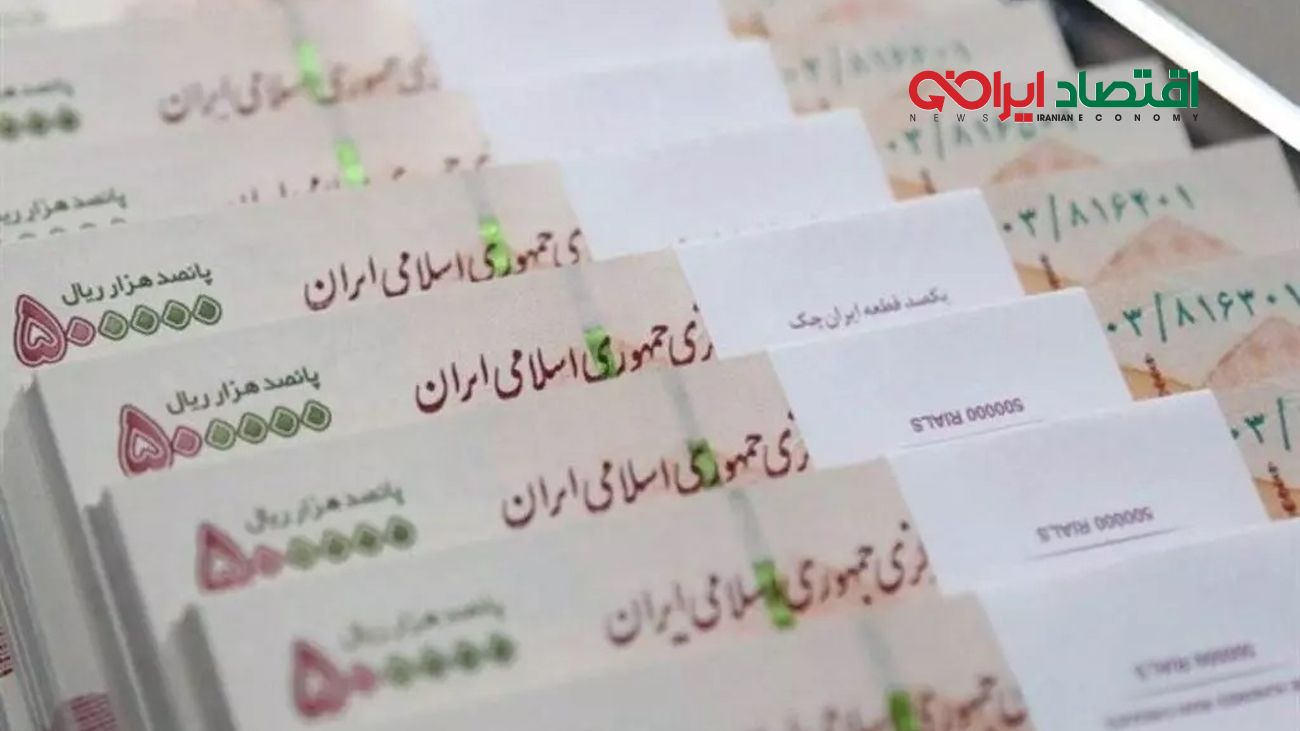 اقتصاد ایران
NEWS IRANIAN ECONOMY
جمهوری اسلامی ایران
پانصد هزار ریال
جمهوری اسلامی ایران
پانصد هزار ریال
۵۰۰۰۰۰
۰۳/۸۱۶۴۰۱
یکصد قطعه ایران چک
جمهوری اسلامی ایران
پانصد هزار ریال
۵۰۰۰۰۰
۰۳/۸۱۶۳۰۱
500000 RIALS
جمهوری اسلامی ایران
پانصد هزار ریال
۵۰۰۰۰۰
500000 RIALS
جمهوری اسلامی ایران
پانصد هزار ریال
۵۰۰۰۰۰
500000 RIALS
جمهوری